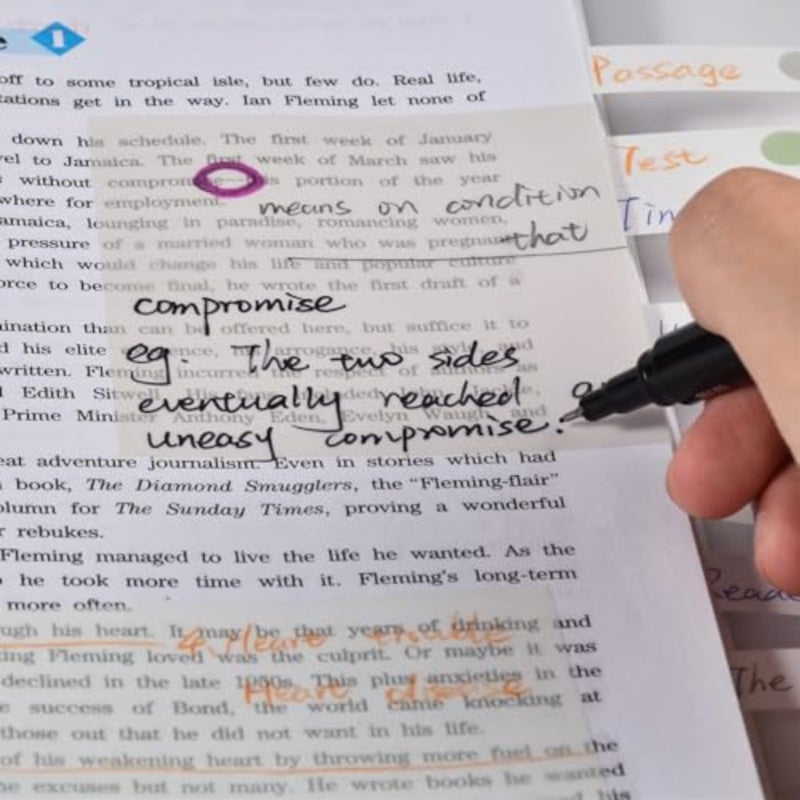 1
off to some tropical isle, but few do. Real life,
get in the way. Ian Fleming let none of
down his schedule. The first week of January
to Jamaica. The first week of March saw his
without compromise this portion of the year
where for employment.
means on condition
lounging in paradise, romancing women,
that
pressure of a married woman who was pregnant
which would change his life and popular culture
to become final, he wrote the first draft of a
compromise
than can be offered here, but suffice it to
eg. The two sides
his elite arrogance, his style and
written. Fleming incurred the respect of authors as
eventually reached a
Edith Sitwell
uneasy compromise.
Prime Minister Anthony Eden, Evelyn Waugh and
adventure journalism. Even in stories which had
book, The Diamond Smugglers, the "Fleming-flair"
for The Sunday Times, proving a wonderful
rebukes.
Fleming managed to live the life he wanted. As the
he took more time with it. Fleming's long-term
more often.
his heart. It may be that years of drinking and
& Heart trouble
Fleming loved was the culprit. Or maybe it was
declined in the late 1950s. This plus anxieties in the
Heart disease
success of Bond, the world came knocking at
those out that he did not want in his life.
of his weakening heart by throwing more fuel on the
excuses but not many. He wrote books he wanted
his
Passage
Test
The